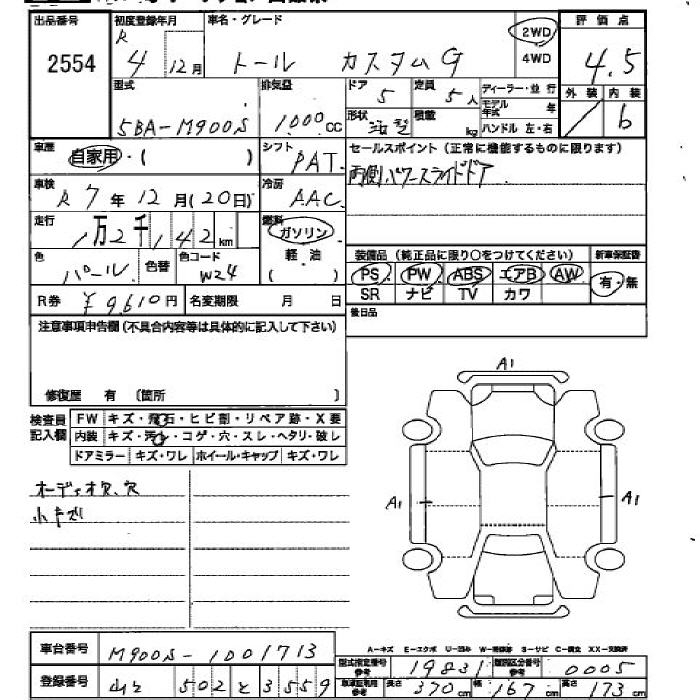 出品番号 初度登録年月 車名・グレード 評価点
2554 R 4年12月 トール カスタムG 2WD 4WD 4.5
型式 排気量 ドア 定員 ディーラー・並行 外装 内装
5BA-M900S 1000cc 5 5人 モデル年式 年 b
形状 積載 kg ハンドル 左・右
車歴 自家用・( ) シフト PAT セールスポイント (正常に機能するものに限ります)
車検 R7年12月(20日) 冷房 AAC 両側パワースライドドア
走行 1万2千142km 燃料 ガソリン
色 パール 色替 色コード W24 軽油 ( )
装備品 (純正品に限り○をつけてください) 新車保証書
PS PW ABS エアB AW 有・無
SR ナビ TV カワ
R券 ¥9610円 名変期限 月 日
後日品
注意事項申告欄 (不具合内容等は具体的に記入して下さい)
修復歴 有 〔箇所 〕
検査員記入欄 FW キズ・飛石・ヒビ割・リペア跡・X要
内装 キズ・汚レ・コゲ・穴・スレ・ヘタリ・破レ
ドアミラー キズ・ワレ ホイール・キャップ キズ・ワレ
オーディオ欠、穴
小キズ
A1
A1
A1
車台番号 M900S-1001713
A-キズ E-エクボ U-凹み S-サビ C-腐食 XX-交換済
型式指定番号 参考 19831 類別区分番号 参考 0005
登録番号 502 と 3559
長さ 370cm 幅 167cm 高さ 173cm